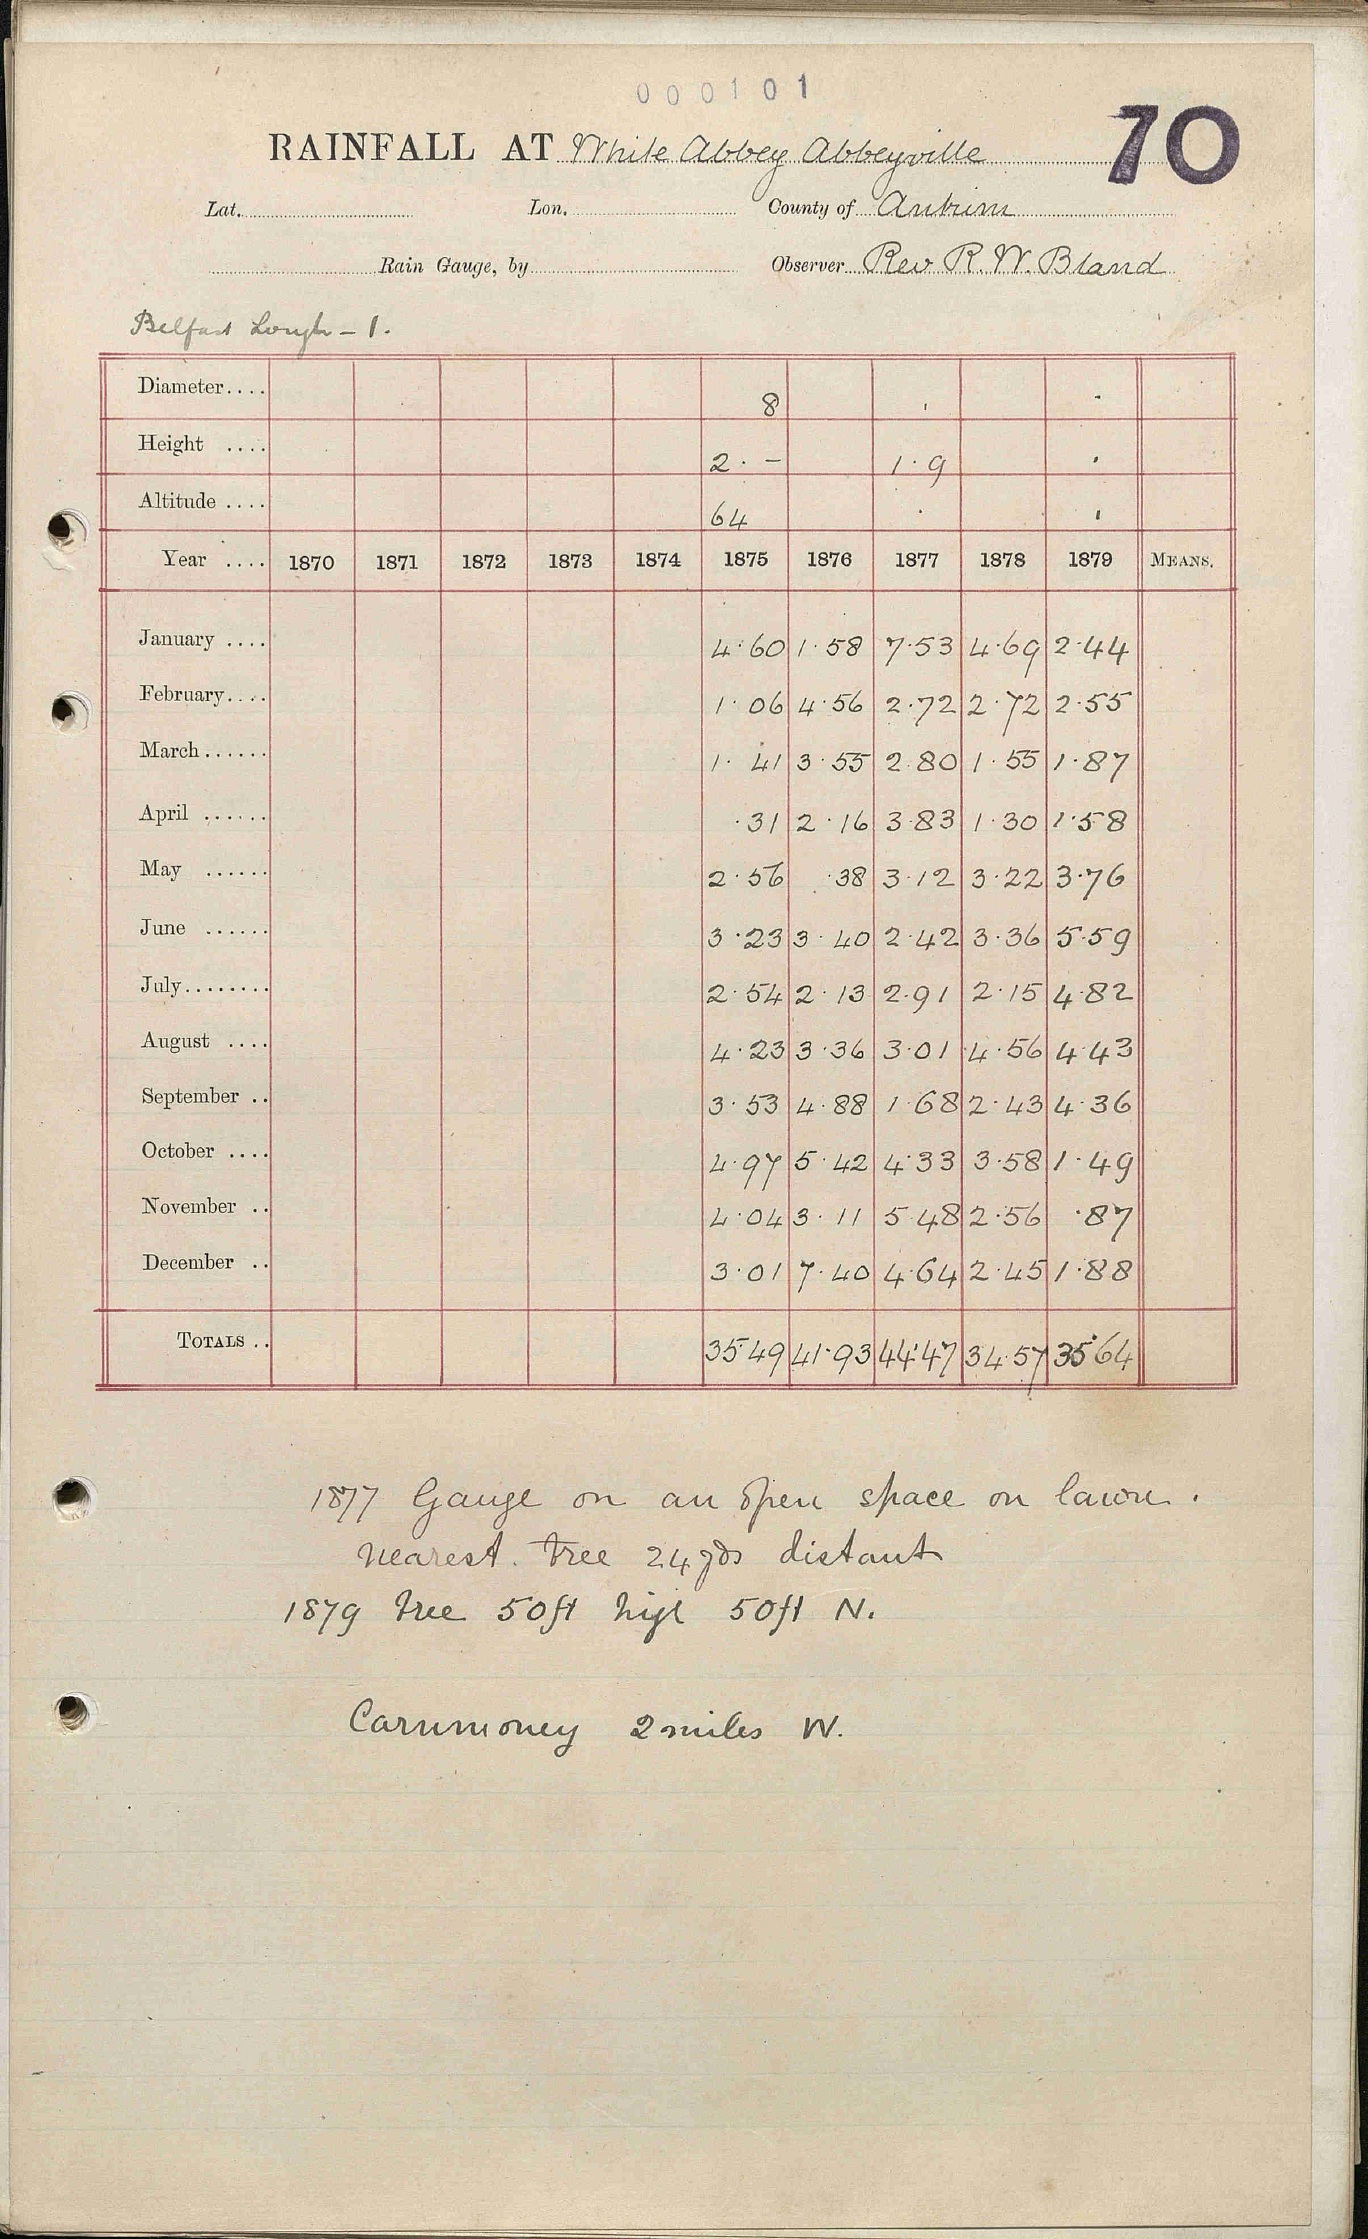 000101
70
RAINFALL AT White Abbey Abbeyville
Lat. Lon. County of Antrim
Rain Gauge, by Observer Rev R. W. Bland
Belfast Lough - 1.
Diameter.... 8
Height .... 2 · - 1 · 9
Altitude .... 64
Year .... 1870 1871 1872 1873 1874 1875 1876 1877 1878 1879 MEANS.
January .... 4·60 1·58 7·53 4·69 2·44
February.... 1·06 4·56 2·72 2·72 2·55
March...... 1·41 3·55 2·80 1·55 1·87
April ...... ·31 2·16 3·83 1·30 1·58
May ...... 2·56 ·38 3·12 3·22 3·76
June ...... 3·23 3·40 2·42 3·36 5·59
July........ 2·54 2·13 2·91 2·15 4·82
August .... 4·23 3·36 3·01 4·56 4·43
September .. 3·53 4·88 1·68 2·43 4·36
October .... 4·97 5·42 4·33 3·58 1·49
November .. 4·04 3·11 5·48 2·56 ·87
December .. 3·01 7·40 4·64 2·45 1·88
TOTALS .. 35·49 41·93 44·47 34·57 35·64
1877 Gauge on an open space on lawn.
nearest tree 24 yds distant
1879 tree 50ft high 50ft N.
Carnmoney 2 miles W.